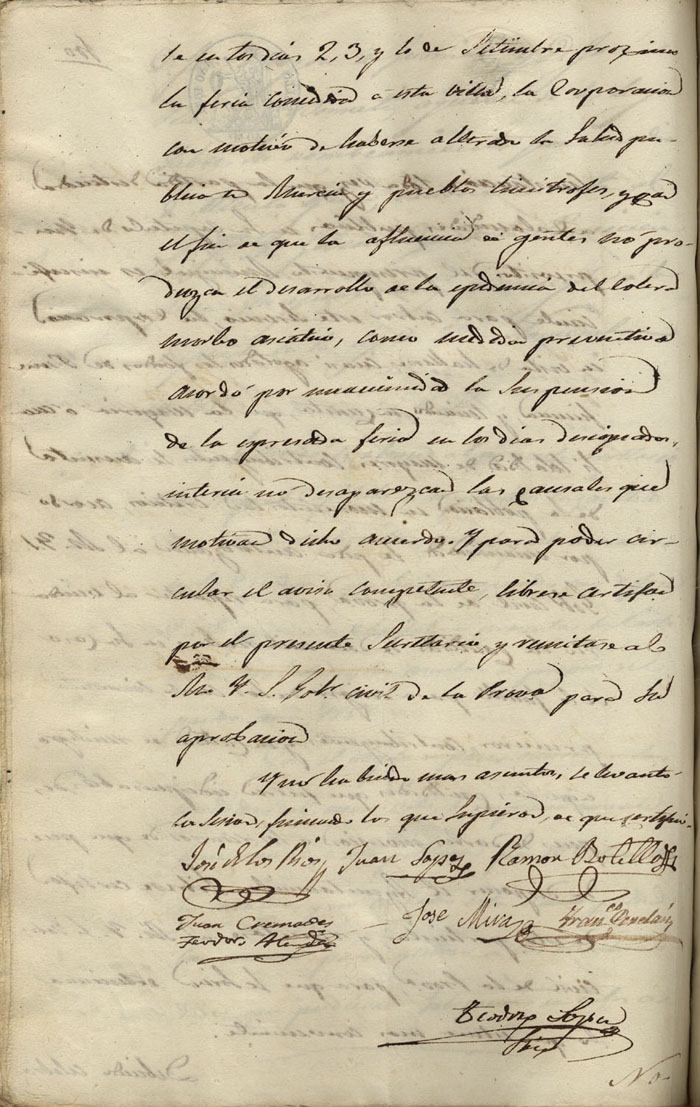 te en los dias 2, 3, y 4 de Setiembre proximo
la feria concedida a esta villa, la Corporacion
con motivo de haberse alterado la Salud pu-
blica de Murcia y pueblos limitrofes, y con
el fin de que la afluencia de gentes no pro-
duzca el desarrollo de la epidemia del Colera
morbo asiatico, como medida preventiva
acordó por unanimidad la Suspension
de la espresada feria en los dias designados,
interin no desaparezcan las causales que
motivan dicho acuerdo. Y para poder cir-
cular el aviso competente, librese certificad
por el presente Secretario y remitase al
S. Gobr. civil de la Prova para su
aprobacion
Y no habiendo mas asuntos, se levanto
la Sesion, firmando los que supieron, de que certifico.
José de los Rios Juan Lopez Ramon Botella
Juan Cremades José Mira Franco
Teodoro
Teodoro Lopez
Srio